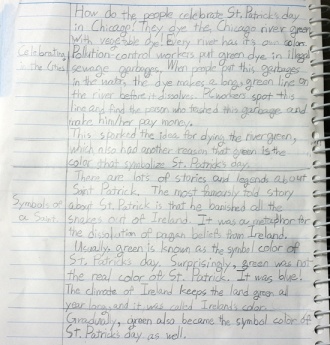 How do the people celebrate St. Patrick's day
in Chicago? They dye the Chicago river green
with vegetable dye! Every river has it's own color.
Celebrating
in the Cities
Pollution-control workers put green dye in illegal
sewage garbages. When people put this garbages
in the water, the dye makes a long, green line on
the river before it dissolves. Pc-workers spot this
line and find the person who trashed this garbage and
make him/her pay money.
This sparked the idea for dying the river green,
which also had another reason that green is the
color that symbolize St. Patrick's day.
There are lots of stories and legends about
Saint Patrick. The most famously told story
Symbols of
a Saint
about St. Patrick is that he banished all the
snakes out of Ireland. It was a metaphor for
the of paggen beliefs from Ireland.
Usually green is known as the symbol color of
St. Patricks day. Surprisingly, green was not
the real color of St. Patrick. It was blue!
The climate of Ireland keeps the land green all
year long and it was called Ireland's color.
Gradually, green also became the symbol color of
St. Patrick's day as well.